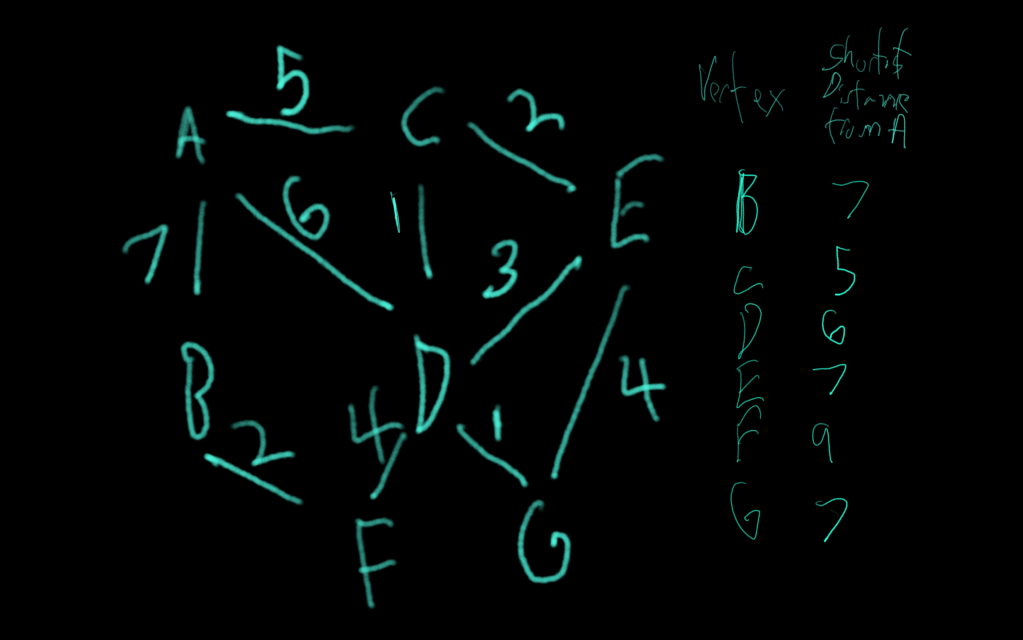 5
A C 2
6 1 E
7 3
Vertex Shortest
Distance
from A
B 7
C 5
D 6
E 7
F 9
G 7
D 4
B 2 4 1
F G